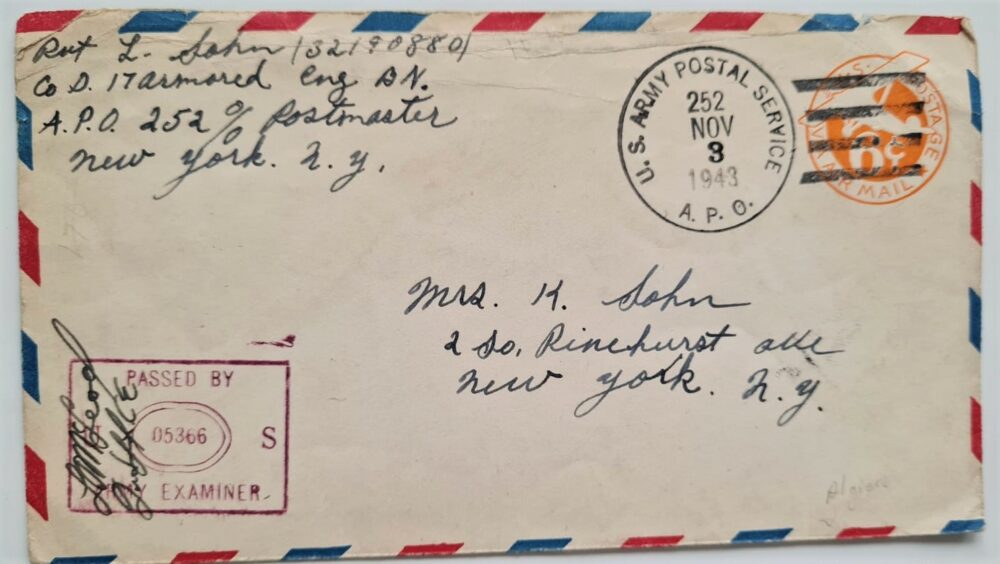 Pvt L. Sohn (32190880)
Co D. 17 armored Eng BN.
A.P.O. 252 % Postmaster
new york. N.y.
U.S. ARMY POSTAL SERVICE
252
NOV
3
1943
A.P.O.
U.S. POSTAGE
6¢
VIA AIR MAIL
Mrs. K. Sohn
2 So. Pinehurst ave
new york. N.y.
PASSED BY
05366 S
ARMY EXAMINER
Algiers